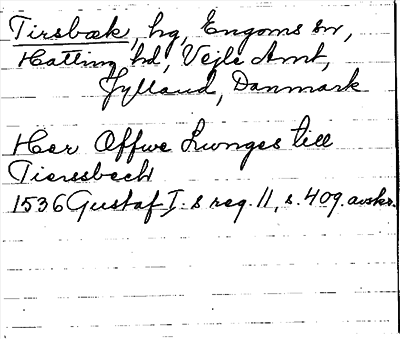 Tirsbæk, hg, Engoms sn,
Hatting hd, Vejle Amt,
Jylland, Danmark
Her Offwe Lwnges till
Tierssbeck
1536 Gustaf I. s reg. 11, s. 409. avskr.